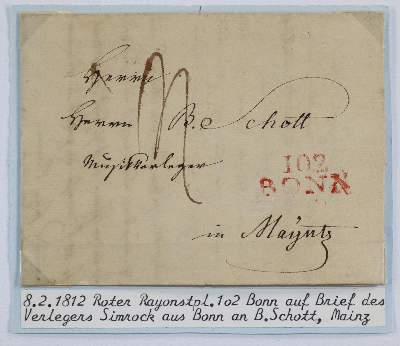 Herrn
Herrn B. Schott
Musikverleger
102
BONN
in Mayntz
8.2.1812 Roter Rayonstpl.102 Bonn auf Brief des
Verlegers Simrock aus Bonn an B.Schott, Mainz